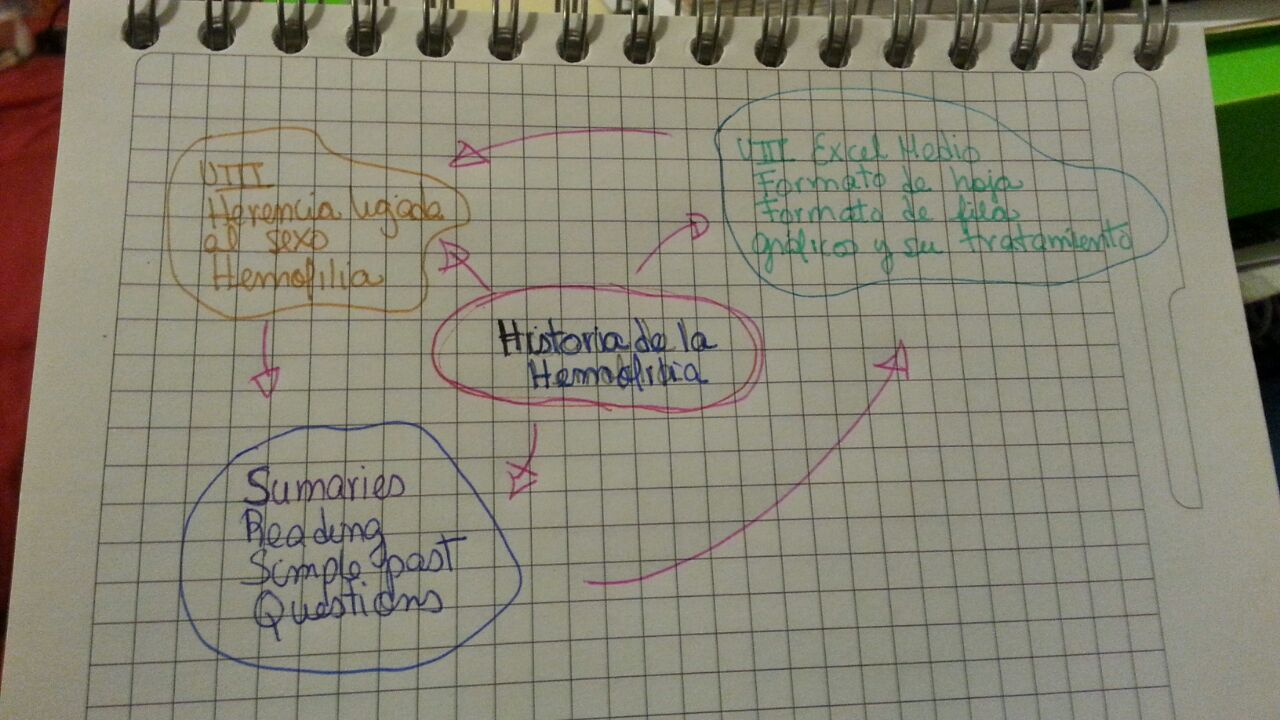 UIII
Herencia ligada
al sexo
Hemofilia
UIII Excel Medio
Formato de hoja
Formato de fila
gráficos y su tratamiento
Historia de la
Hemofilia
Sumaries
Reading
Simple past
Questions